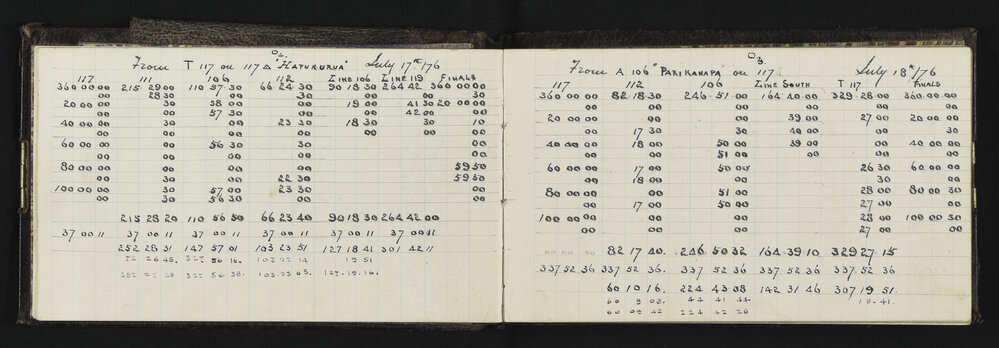 04.
From T 117 on 117 Δ "HATUKURUA" July 17th/76
117 111 106 112 LINE 106 LINE 119 FINALS
360 00 00 215 29 00 110 57 30 66 24 30 90 18 30 264 42 360 00 00
00 28 30 30 30 00 00 30
20 00 00 30 58 00 00 19 00 41 30 20 00 00
00 00 57 30 00 00 42 00 00
40 00 00 30 00 23 30 18 30 30 10
00 00 00 00 00 00 00
60 00 00 00 56 30 30 00
00 00 00 00 00
80 00 00 00 00 00 59 50
00 30 00 22 30 59 50
100 00 00 30 57 00 23 30 00
00 30 56 30 00 00
215 28 20 110 56 50 66 23 40 90 18 30 264 42 00
37 00 11 37 00 11 37 00 11 37 00 11 37 00 11 37 00 11
252 28 31 147 57 01 103 23 51 127 18 41 301 42 11
26 45. 56 16. 103 22 14 19 51
56 38. 103 23 05. 127 19 16.
03.
From Δ 106 "PARIKANAPA" on 117 July 18th/76
117 112 106 LINE SOUTH T 117 FINALS
360 00 00 82 18 30 246 51 00 164 40 00 329 28 00 360 00 00
00 00 00 00 00 00
20 00 00 00 00 39 00 27 00 20 00 00
00 17 30 30 40 00 00 30
40 00 00 18 00 50 00 39 00 00 40 00 00
00 00 51 00 00 00 00
60 00 00 17 00 50 00 26 30 60 00 00
00 18 00 00 30 00
80 00 00 00 51 00 28 00 80 00 30
00 17 00 50 00 27 00 00
100 00 00 00 00 28 00 100 00 30
00 00 00 27 00 00
00 00 00 82 17 40. 246 50 32 164 39 10 329 27 15
337 52 36 337 52 36. 337 52 36 337 52 36 337 52 36
60 10 16. 224 43 08 142 31 46 307 19 51.
60 9 08. 44 41 44 18. 41.
60 09 42 224 42 26